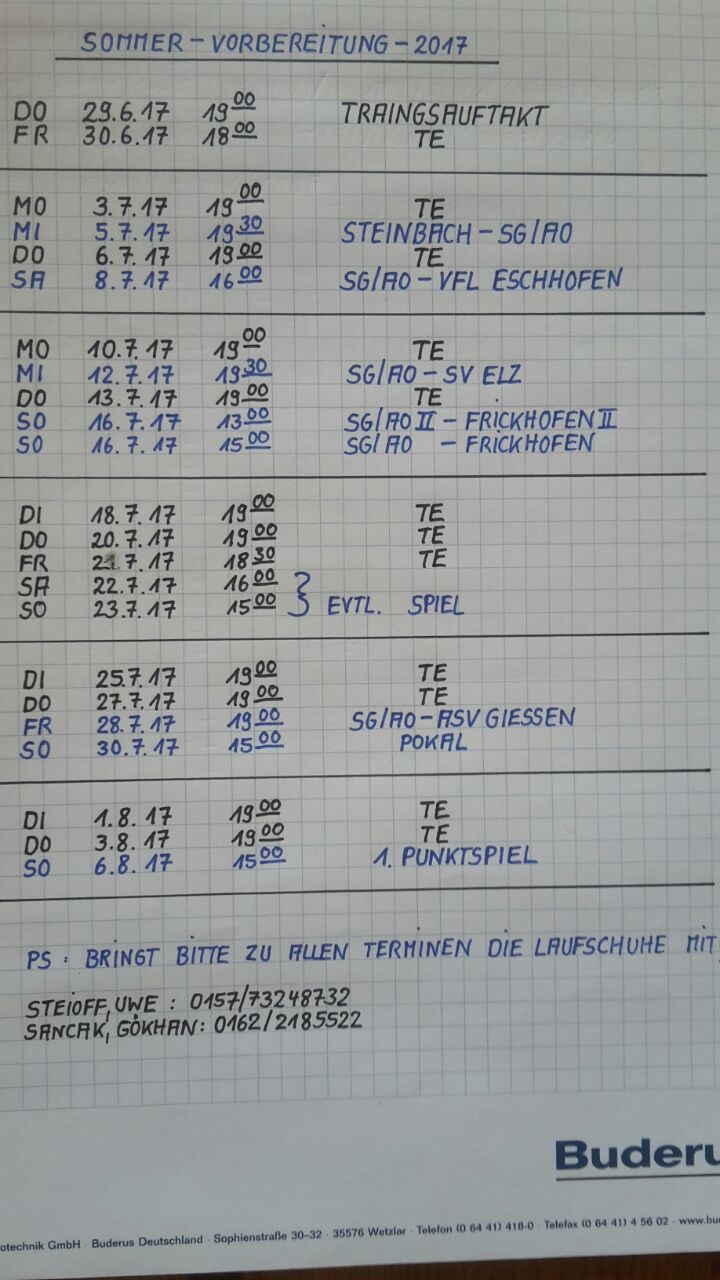 SOMMER – VORBEREITUNG – 2017
DO 29.6.17 19 00 TRAINGSAUFTAKT
FR 30.6.17 18 00 TE
MO 3.7.17 19 00 TE
MI 5.7.17 19 30 STEINBACH – SG/AO
DO 6.7.17 19 00 TE
SA 8.7.17 16 00 SG/AO – VFL ESCHHOFEN
MO 10.7.17 19 00 TE
MI 12.7.17 19 30 SG/AO – SV ELZ
DO 13.7.17 19 00 TE
SO 16.7.17 13 00 SG/AO II – FRICKHOFEN II
SO 16.7.17 15 00 SG/AO – FRICKHOFEN
DI 18.7.17 19 00 TE
DO 20.7.17 19 00 TE
FR 21.7.17 18 30 TE
SA 22.7.17 16 00
SO 23.7.17 15 00 } EVTL. SPIEL
DI 25.7.17 19 00 TE
DO 27.7.17 19 00 TE
FR 28.7.17 19 00 SG/AO – ASV GIESSEN
SO 30.7.17 15 00 POKAL
DI 1.8.17 19 00 TE
DO 3.8.17 19 00 TE
SO 6.8.17 15 00 1. PUNKTSPIEL
PS : BRINGT BITTE ZU ALLEN TERMINEN DIE LAUFSCHUHE MIT
STEIOFF, UWE : 0157/73248732
SANCAK, GÖKHAN : 0162/2185522
Buderu
otechnik GmbH · Buderus Deutschland · Sophienstraße 30–32 · 35576 Wetzlar · Telefon (0 64 41) 418-0 · Telefax (0 64 41) 4 56 02 · www.bu